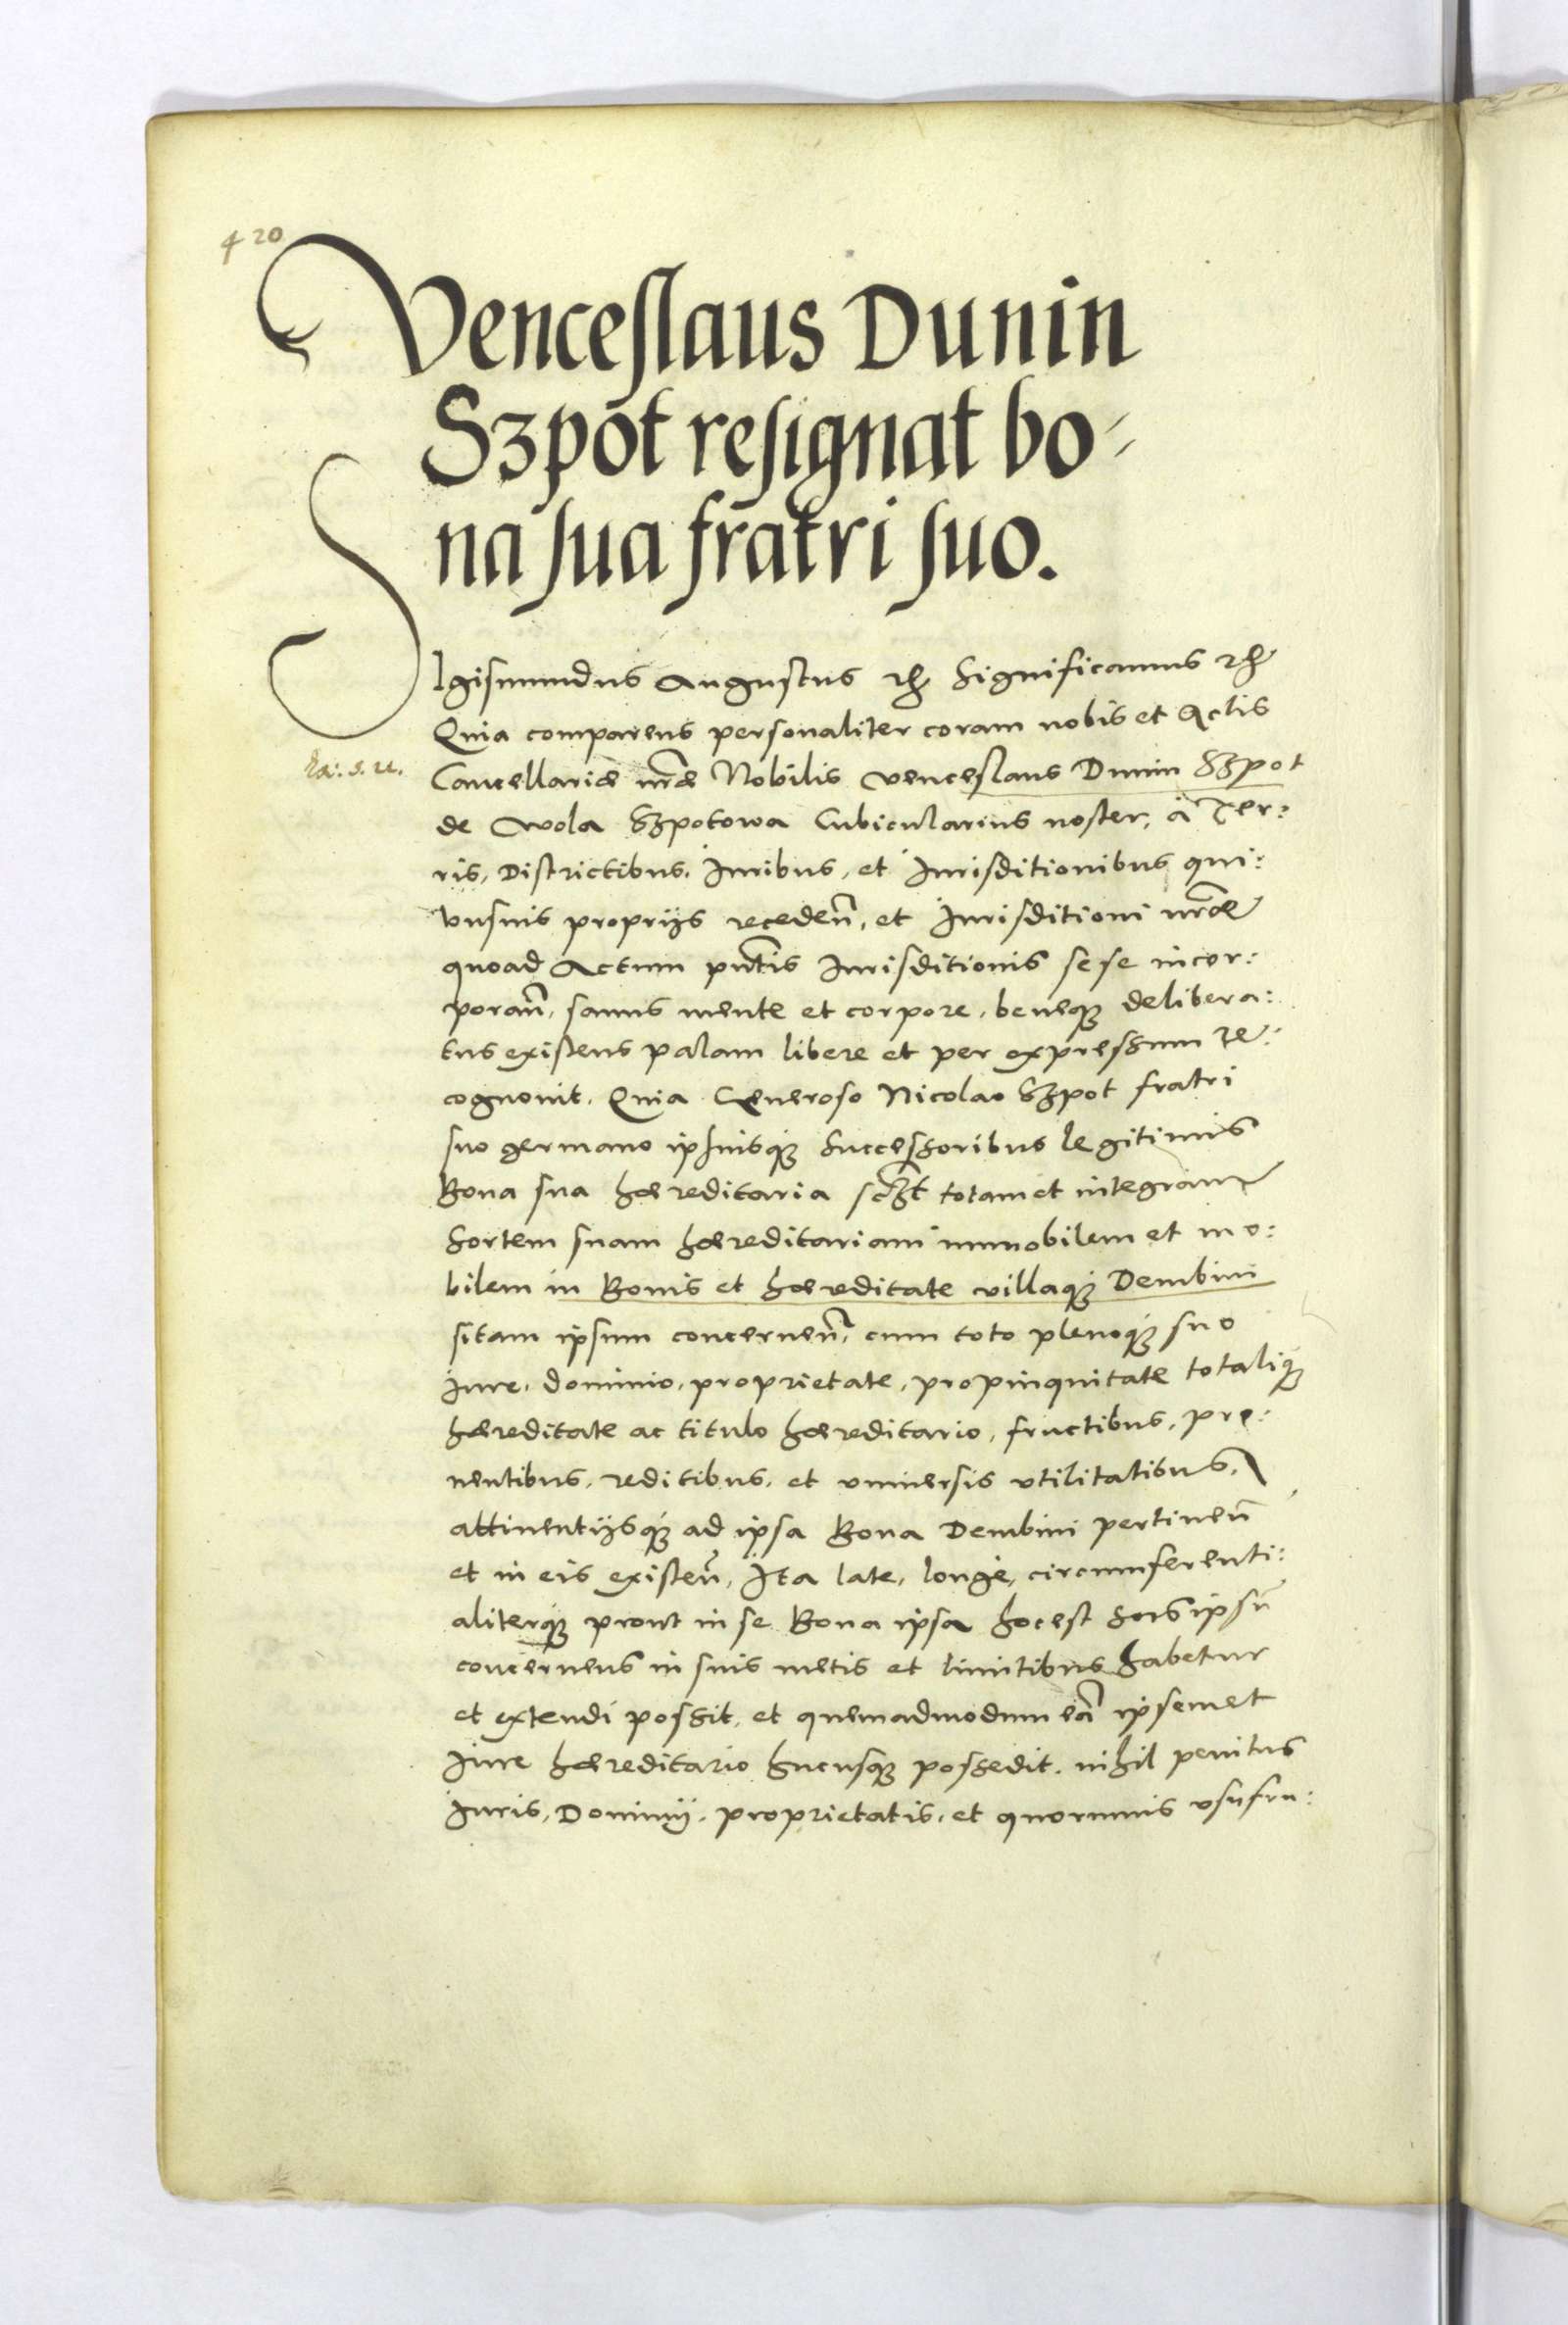 420
Venceslaus Dunin
Szpot resignat bo-
na sua fratri suo.
SIgismundus Augustus etc Significamus etc
Quia comparens personaliter coram nobis et Actis
Cancellariæ nr̃æ Nobilis Venceslaus Dunin Szpot
de Wola Szpotowa Cubicularius noster, à Ter:
ris, Districtibus, Iuribus, et Iurisditionibus qui:
busuis proprijs receden̄, et Iurisditioni nr̃æ
quoad Actum pn̄tis Iurisditionis sese incor:
poran̄, sanus mente et corpore, beneq3 delibera:
tus existens palam libere et per expressum re:
cognouit. Quia Generoso Nicolao Szpot fratri
suo germano ipsiusq3 successoribus legitimis
Bona sua hæreditaria sczt totam et integram
sortem suam hæreditariam immobilem et mo:
bilem in Bonis et hæreditate villaq3 Dembini
sitam ipsum concernen̄, cum toto plenoq3 suo
iure, dominio, proprietate, propinquitate totaliq3
hæreditate ac titulo hæreditario, fructibus, pro:
uentibus, reditibus, et vniuersis vtilitatibus,
attinentijsq3 ad ipsa Bona Dembini pertinen̄
et in eis existen̄, Ita late, longè, circumferenti:
aliterq3 prout in se Bona ipsa hocest sors ipsū
concernens in suis metis et limitibus habetur
et extendi possit, et quemadmodum eā ipsemet
Iure hæreditario hucusq3 possedit, nihil penitus
Iuris, Dominij, proprietatis, et quorumuis vsufru: